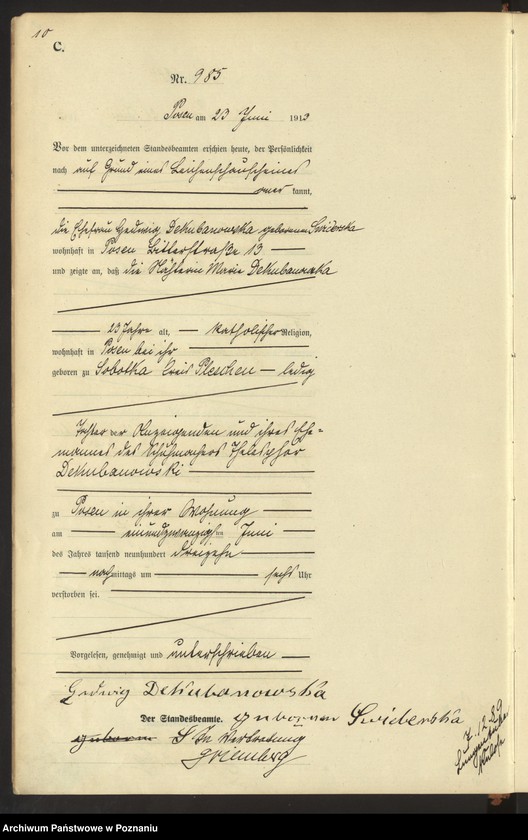 10
C.
Nr. 985
Posen am 23 Juni 1913
Vor dem unterzeichneten Standesbeamten erschien heute, der Persönlichkeit
nach auf Grund eines Leichenschauscheines
aner kannt,
die Ehefrau Hedwig Dekubanowska geborene Swiderska
wohnhaft in Posen Bitterstraße 13
und zeigte an, daß die Nähterin Marie Dekubanowska
23 Jahre alt, katholischer Religion,
wohnhaft in Posen bei ihr
geboren zu Sobotka Kreis Pleschen – ledig
Tochter der Anzeigenden und ihres Ehe=
mannes des Schuhmachers Thelesphor
Dekubanowski
zu Posen in ihrer Wohnung
am einundzwanzigsten Juni
des Jahres tausend neunhundert dreizehn
nachmittags um sechs Uhr
verstorben sei.
Vorgelesen, genehmigt und unterschrieben
Hedwig Dekubanowska
Der Standesbeamte. geborene Swiderska
In Vertretung
7.12.29
Archiwum Państwowe w Poznaniu